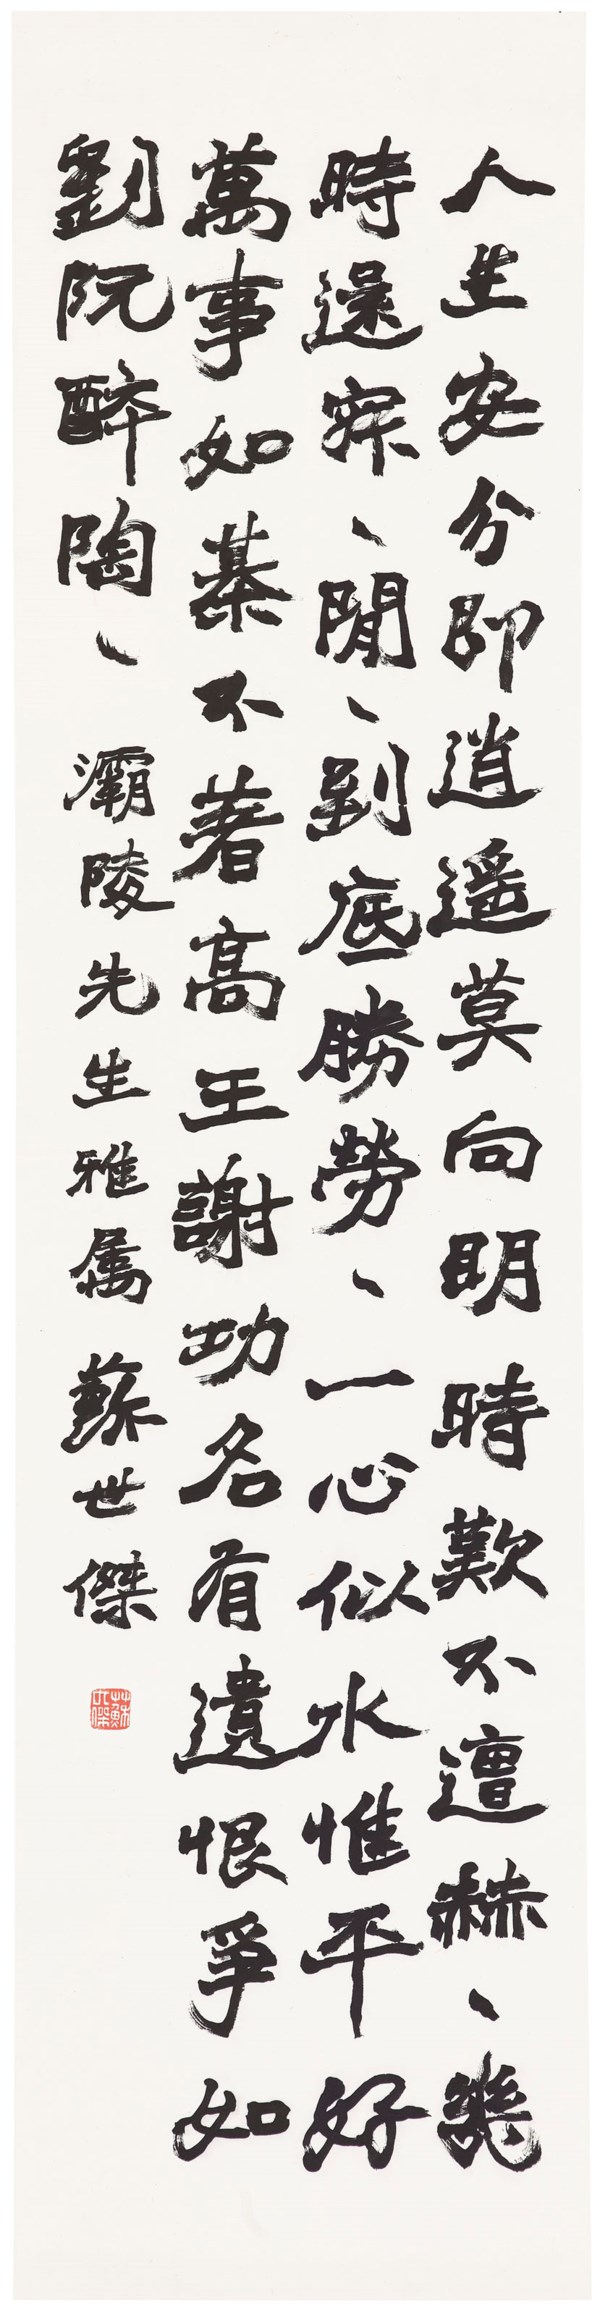 人生安分即逍遥莫向明時歎不遭赫〻幾
時還寂〻閒〻到底勝勞〻一心似水惟平好
萬事如棊不著高王謝功名有遺恨爭如
劉阮醉陶〻
灞陵先生雅属 蘇世傑
蘇世傑